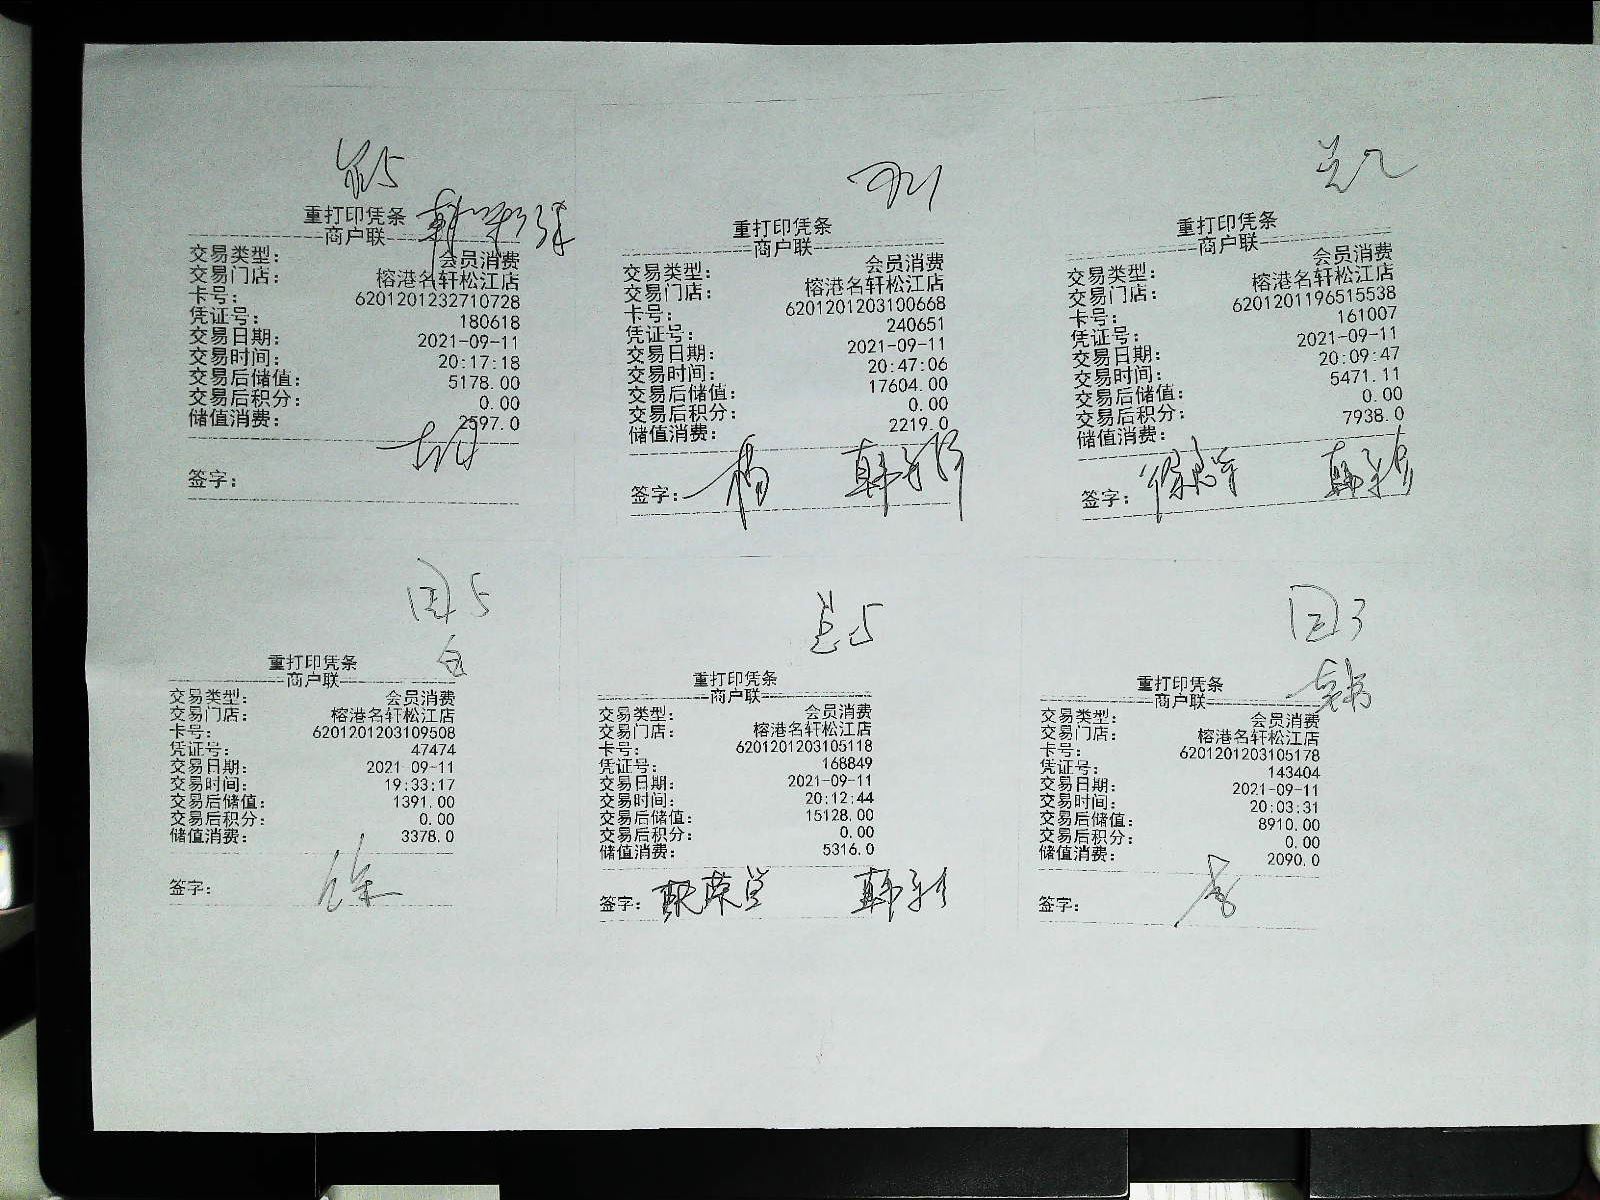 重打印凭条
商户联
交易类型： 会员消费
交易门店： 榕港名轩松江店
卡号： 6201201232710728
凭证号： 180618
交易日期： 2021-09-11
交易时间： 20:17:18
交易后储值： 5178.00
交易后积分： 0.00
储值消费： 2597.0
签字：
重打印凭条
商户联
交易类型： 会员消费
交易门店： 榕港名轩松江店
卡号： 6201201203100668
凭证号： 240651
交易日期： 2021-09-11
交易时间： 20:47:06
交易后储值： 17604.00
交易后积分： 0.00
储值消费： 2219.0
签字： 杨
重打印凭条
商户联
交易类型： 会员消费
交易门店： 榕港名轩松江店
卡号： 6201201196515538
凭证号： 161007
交易日期： 2021-09-11
交易时间： 20:09:47
交易后储值： 5471.11
交易后积分： 0.00
储值消费： 7938.0
签字：
5
重打印凭条
商户联
交易类型： 会员消费
交易门店： 榕港名轩松江店
卡号： 6201201203109508
凭证号： 47474
交易日期： 2021-09-11
交易时间： 19:33:17
交易后储值： 1391.00
交易后积分： 0.00
储值消费： 3378.0
签字： 徐
5
重打印凭条
商户联
交易类型： 会员消费
交易门店： 榕港名轩松江店
卡号： 6201201203105118
凭证号： 168849
交易日期： 2021-09-11
交易时间： 20:12:44
交易后储值： 15128.00
交易后积分： 0.00
储值消费： 5316.0
签字：
3
韩
重打印凭条
商户联
交易类型： 会员消费
交易门店： 榕港名轩松江店
卡号： 6201201203105178
凭证号： 143404
交易日期： 2021-09-11
交易时间： 20:03:31
交易后储值： 8910.00
交易后积分： 0.00
储值消费： 2090.0
签字： 李